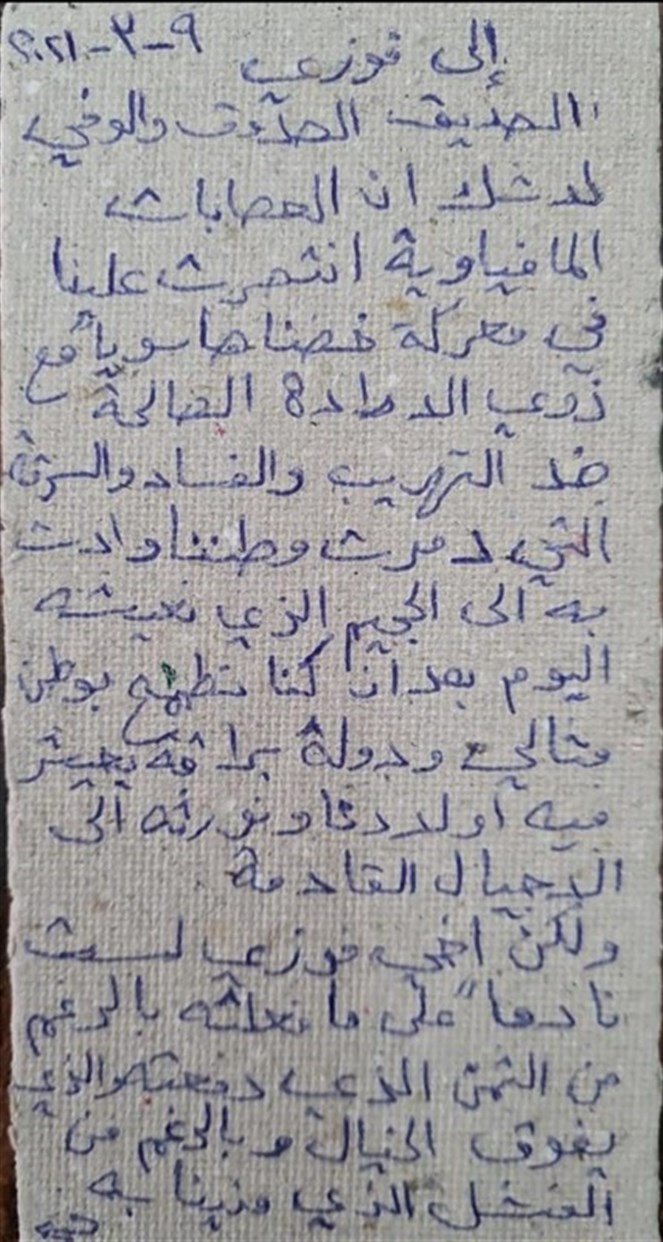 إلى فوزي ٩-٣-٢٠٢١
الصديق الصدوق والوفي
لا شك ان العصابات
المافياوية انتصرت علينا
في معركة خضناها سوياً مع
ذوي الارادة الصالحة
ضد التهريب والفساد والسرقة
التي دمرت وطننا وادت
به الى الجحيم الذي نعيشه
اليوم بعد ان كنا نطمح بوطن
مثالي ودولة براقة يعيش
فيه اولادنا ونورثه الى
الاجيال القادمة
ولكن اخي فوزي لست
نادماً على ما فعلته بالرغم
من الثمن الذي دفعته والذي
يفوق الخيال وبالرغم من
الفشل الذي منينا به